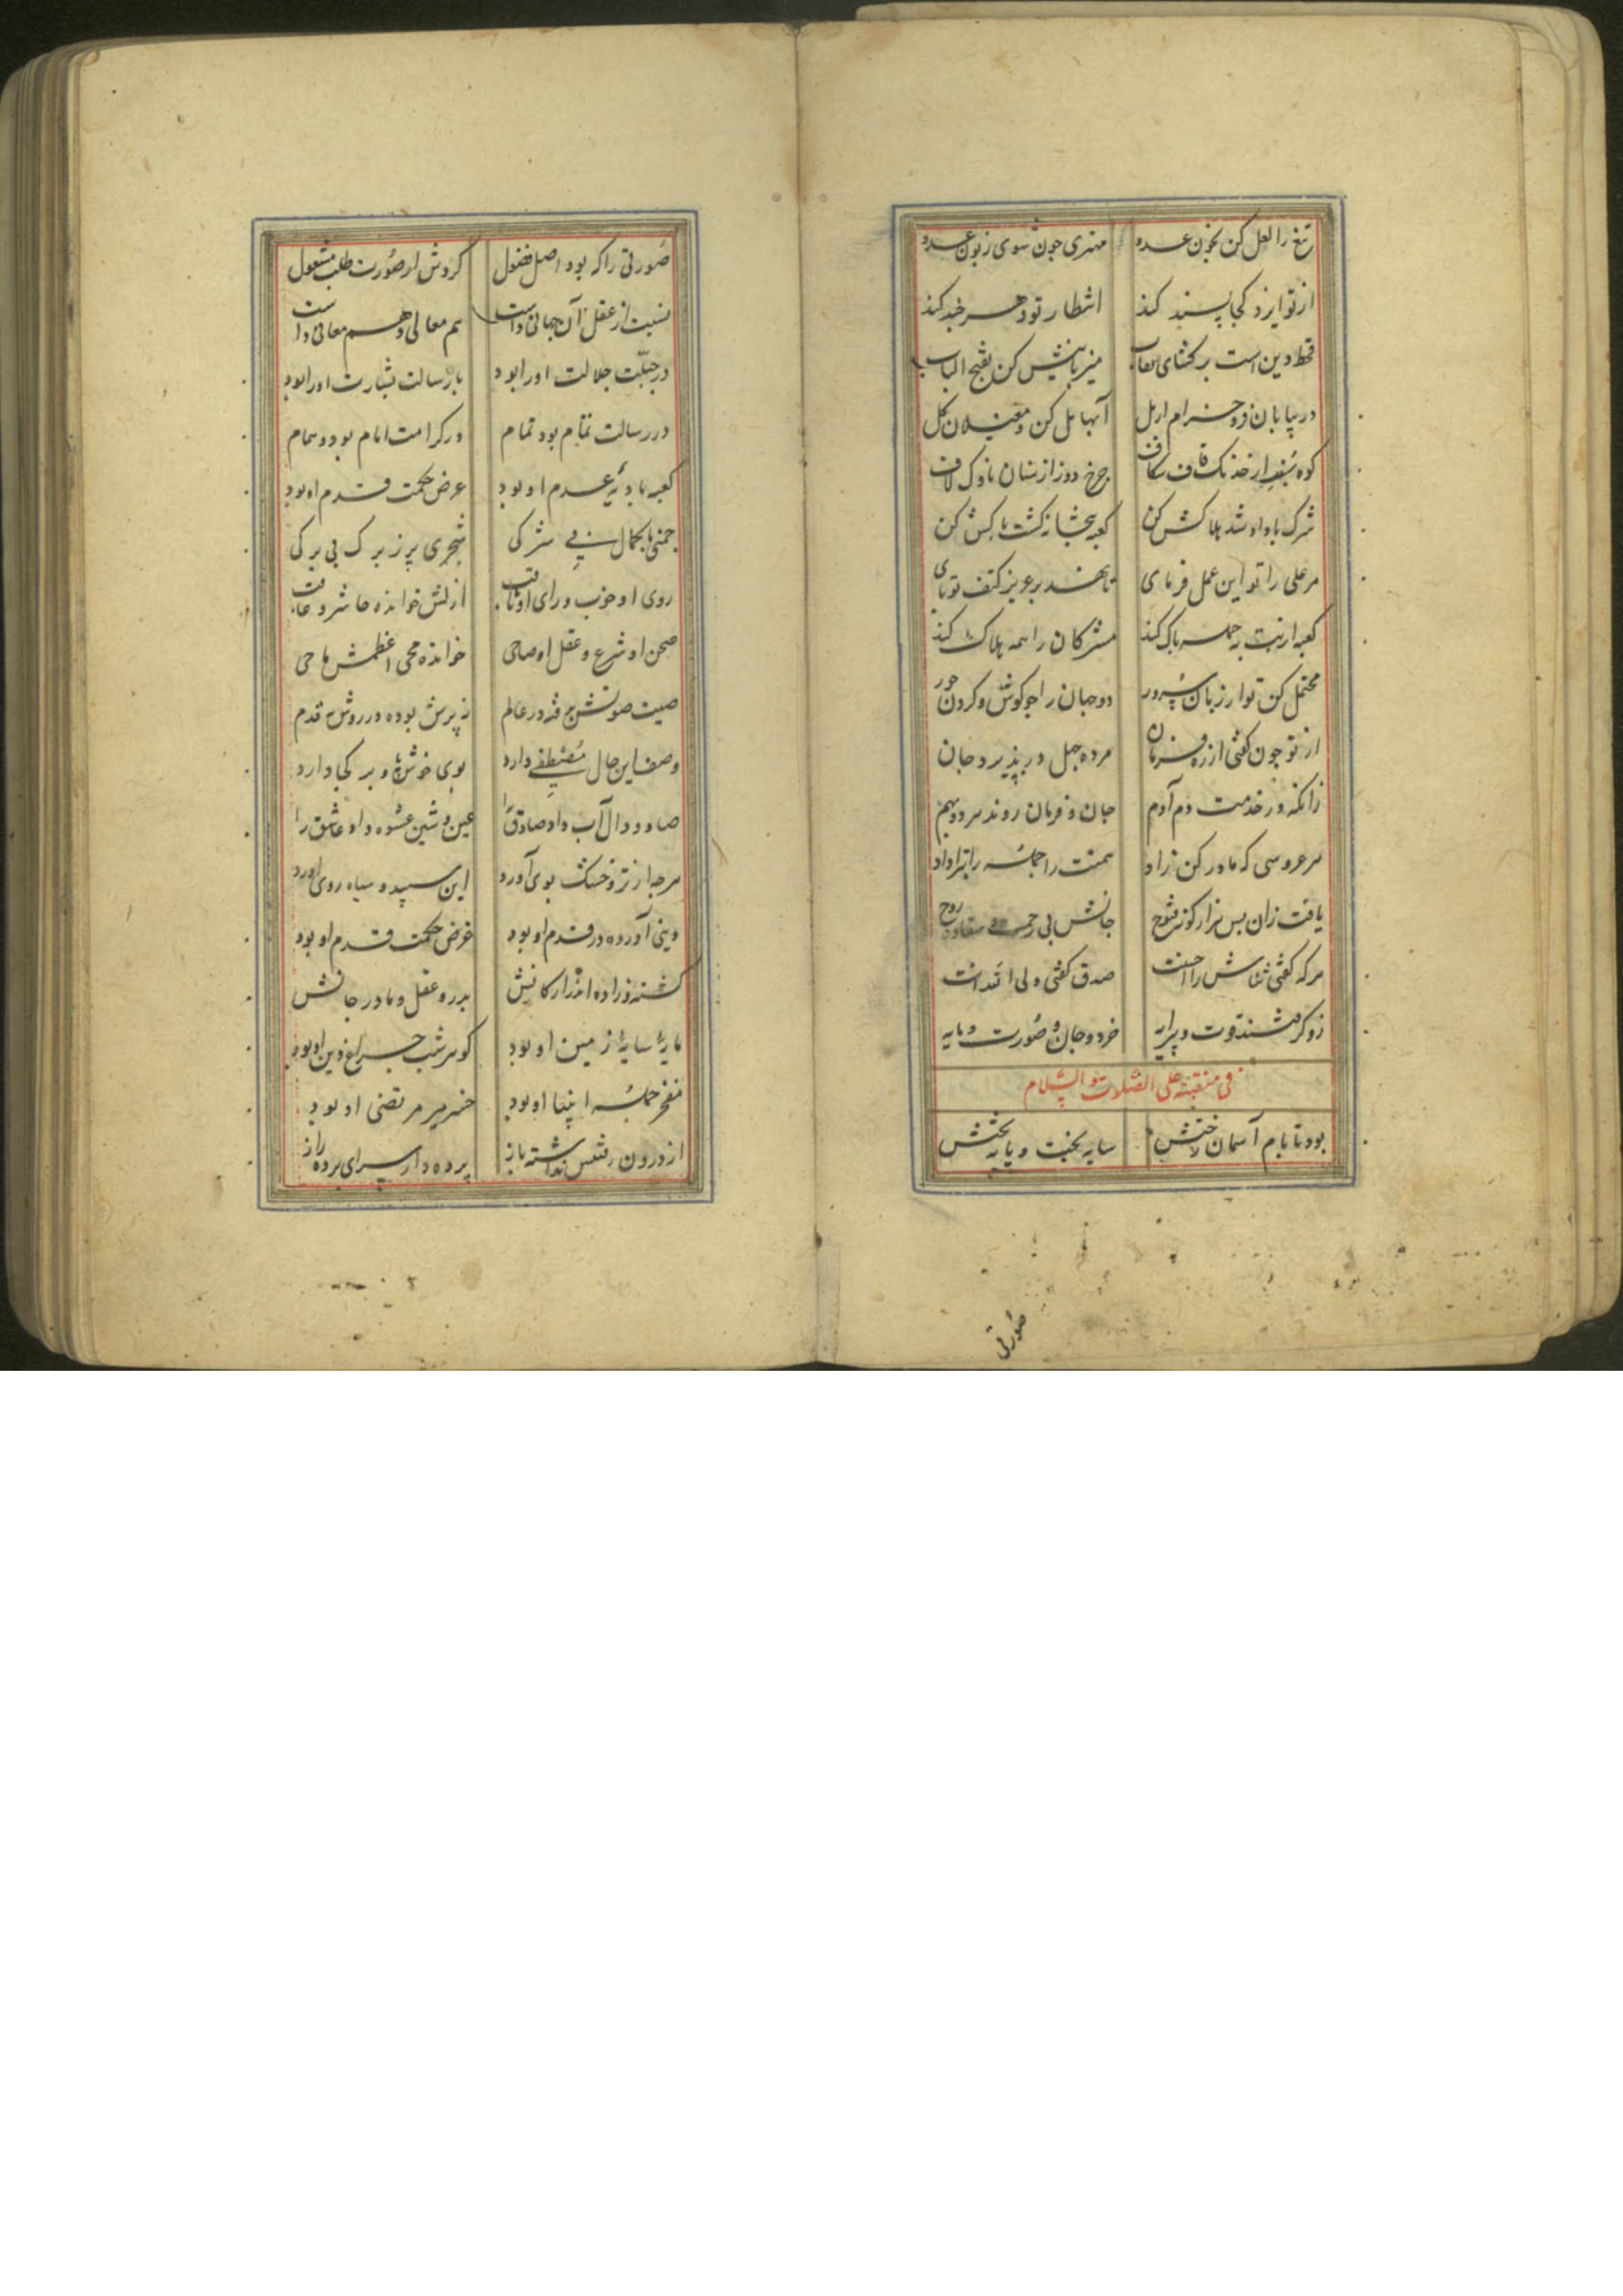 تیغ را لعل کن بخون عدو مهتری جون شوی زبون عدو
از تو ایزد کجا پسند کند انتظار تو و هر خبه کند
قحط دین است برکشای نقاب میزبانیش کن بفتح الباب
در بیابان و خرام از مل آبها مل کن و مغیلان کل
کوه از خدنک قاف شکاف جرخ دوز از سنان ناوک لاف
شرک باواو شد هلاکش کن کعبه بتخانه کشت باکش کن
مر علی را تو این عمل فرمای تا نهد بر عزیز کتف تو پای
کعبه از بت به جمله باک کند مشرکان را همه هلاک کند
محتمل کن تو از زبان سرور دو جهان را جو کوش و کردن حور
از تو جون کفتی از ره فرمان مرده جهل در بذیرد جان
زانکه در خدمت دم آدم جان و فرمان روند هر دو بهم
هر عروسی که مادر کن زاد همتت را جمله را
یافت زان بس هزار کونه فتوح جانش بی زحمت روح
هر که کفتی ثناش را احسنت صدق کفتی ولی اذا انت
زو کرفتند قوت و پیرایه خرد و جان و صورت و مایه
فی منقبته علی الصلوت و السلام
بود تا بام آسمان رختش سایه بخت و پایه تختش
صورتی
صورتی را که بود اصل فضول کردش از صورت طلب مشغول
نسبت از عقل آن جهانی داشت هم معالی و هم معانی داشت
در جبلت جلالت او را بود با رسالت بشارت او را بود
در رسالت تمام بود تمام در کرامت امام بود و همام
کعبه بادیه عدم او بود عرض حکمت قدم او بود
جمنی با کمال بی شرکی شجری پر ز برک بی برکی
روی او خوب و رای او ثاقب ازلش خوانده حاشر و عاقب
صحن او شرع و عقل او صاحی خوانده محی اعظمش ماحی
صیت صوتش برفته در عالم ز پرش بوده در روش قدم
وصف این حال مصطفی دارد بوی خوش و بر کجا دارد
صاد و دال آب داد صادق را عین و شین عشوه داد عاشق را
هرجه از تر و خشک بوی آورد این سپید و سیاه روی آورد
دینی آورده در قدم او بود غرض حکمت قدم او بود
کشته زاده از ارکانش بدر و عقل و مادر جانش
مایه سایه زمین او بود کوهر شب جراغ دین او بود
مفخر جمله انبیا او بود خسر میر مرتضی او بود
از درون نفس نداشته باز پرده دار سرای پرده راز